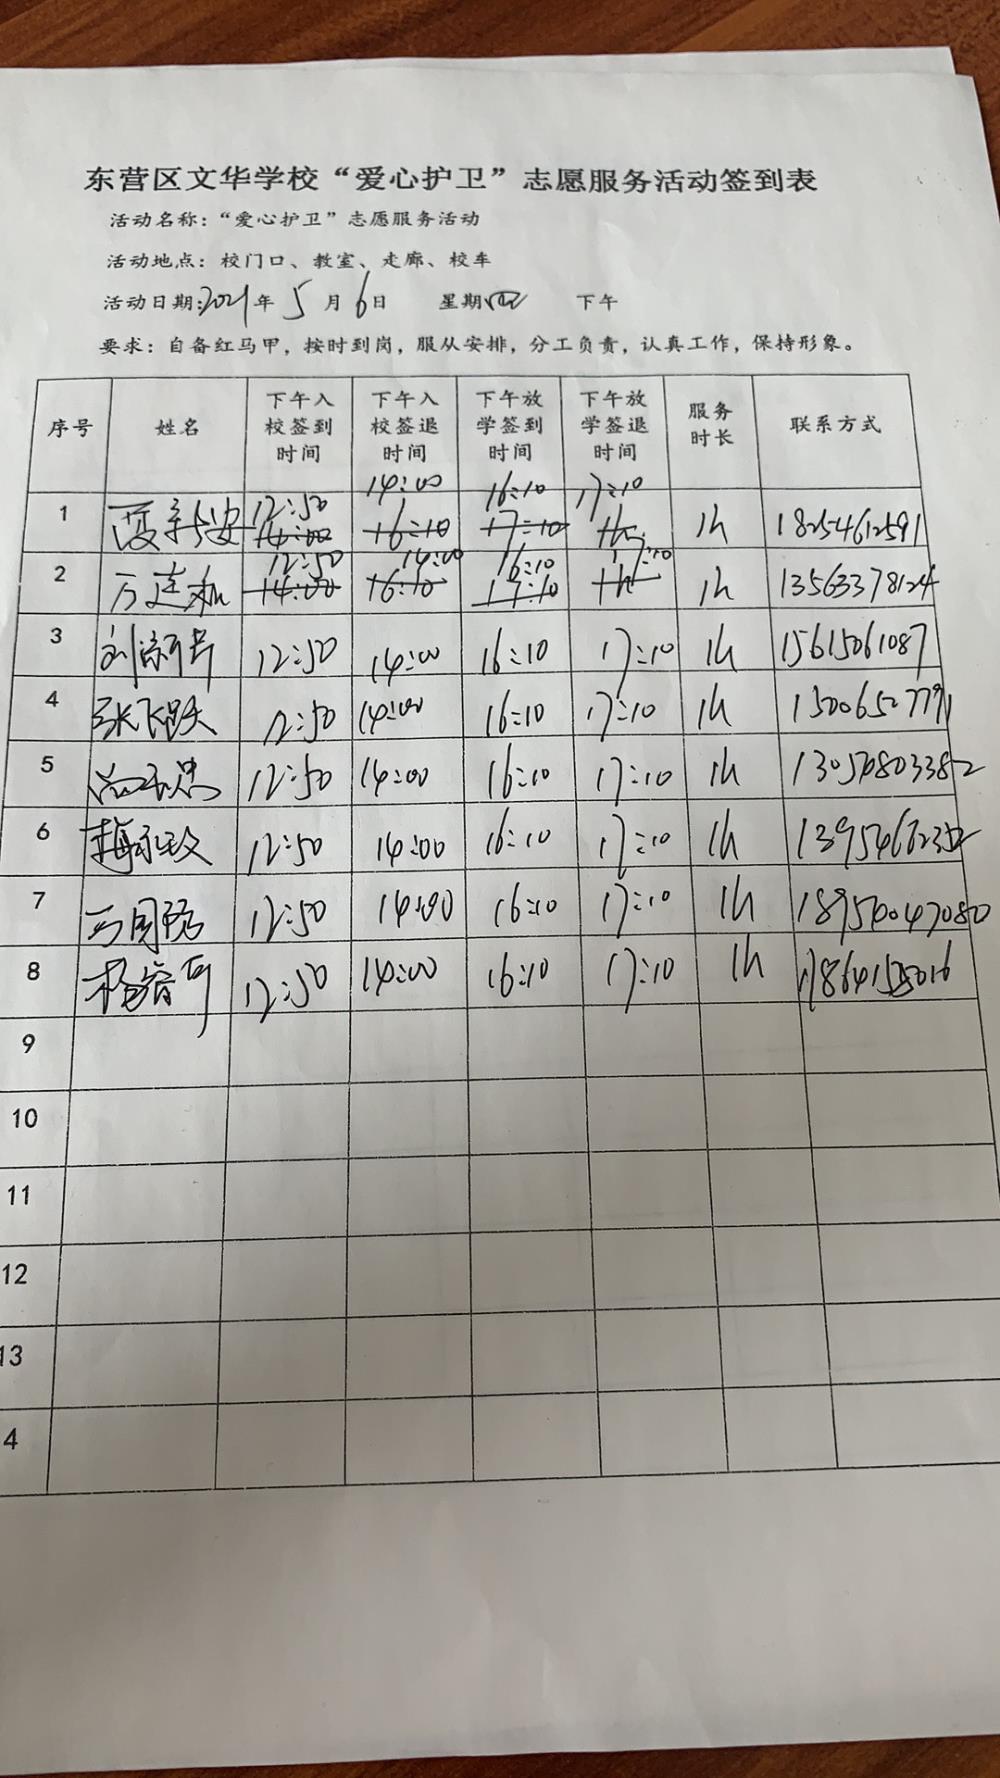 东营区文华学校“爱心护卫”志愿服务活动签到表
活动名称：“爱心护卫”志愿服务活动
活动地点：校门口、教室、走廊、校车
活动日期：2021年 5 月 6 日 星期四 下午
要求：自备红马甲，按时到岗，服从安排，分工负责，认真工作，保持形象。
序号 姓名 下午入校签到时间 下午入校签退时间 下午放学签到时间 下午放学签退时间 服务时长 联系方式
1 12:50 14:00 16:10 17:10 1h 18254612591
14:00 16:10 17:10 1h
2 12:50 14:00 16:10 17:10 1h 13563378124
14:00 16:10 17:10 1h
3 12:50 14:00 16:10 17:10 1h 15615061087
4 张飞跃 12:50 14:00 16:10 17:10 1h 15006527791
5 12:50 14:00 16:10 17:10 1h
6 12:50 14:00 16:10 17:10 1h
7 12:50 14:00 16:10 17:10 1h
8 12:50 14:00 16:10 17:10 1h
9
10
11
12
13
4